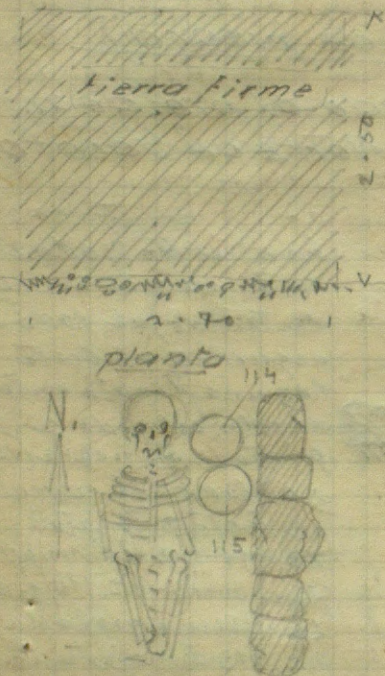 tierra firme
2.50
2.70
planta
N.
114
115